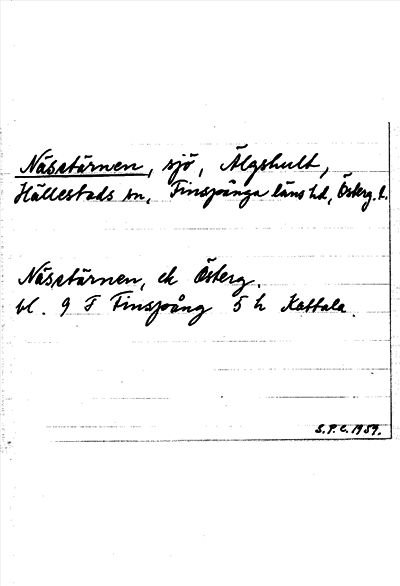 Näsztärnen, sjö, Älgshult,
Hällestads sn, Finspånga läns hd, Österg. l.
Näsztärnen, ek Österg.
bl. 9 F Finspång 5 h Kattala.
S.P.C. 1959.